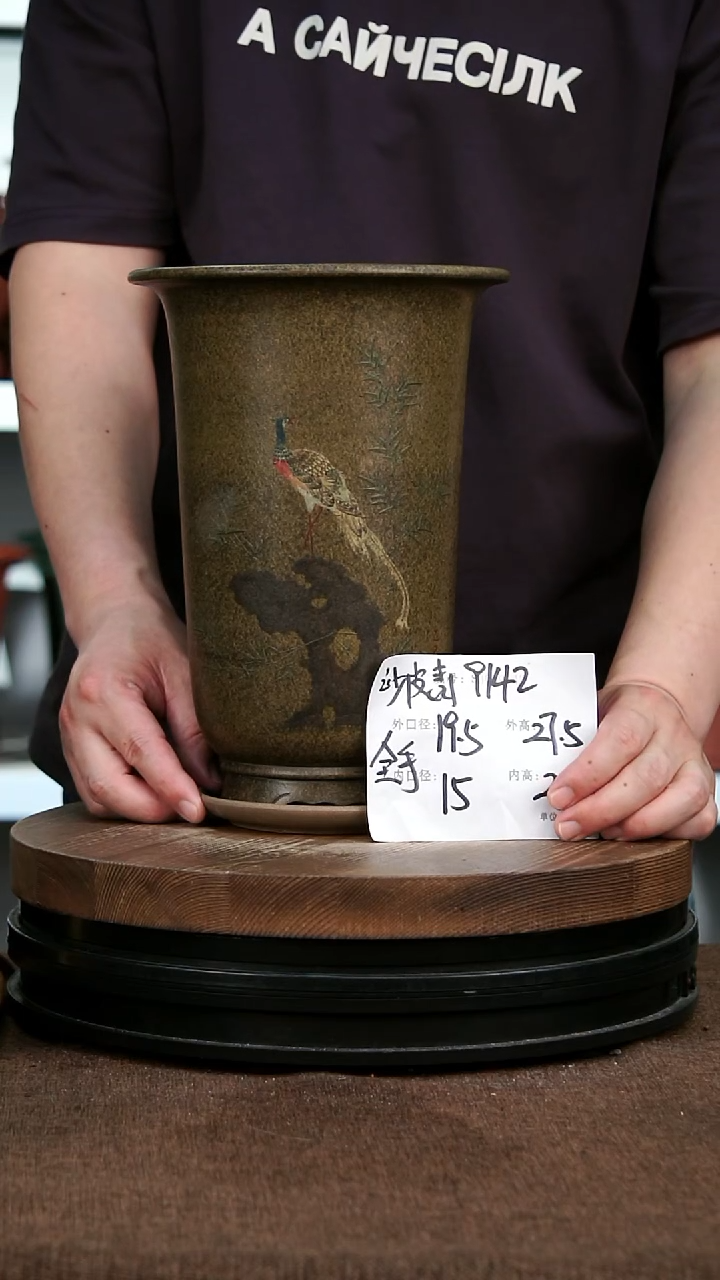 А САЙЧЕСІЛК
沙皮青 9142
外口径: 19.5 外高: 27.5
全手
内口径: 15 内高: 2
单位